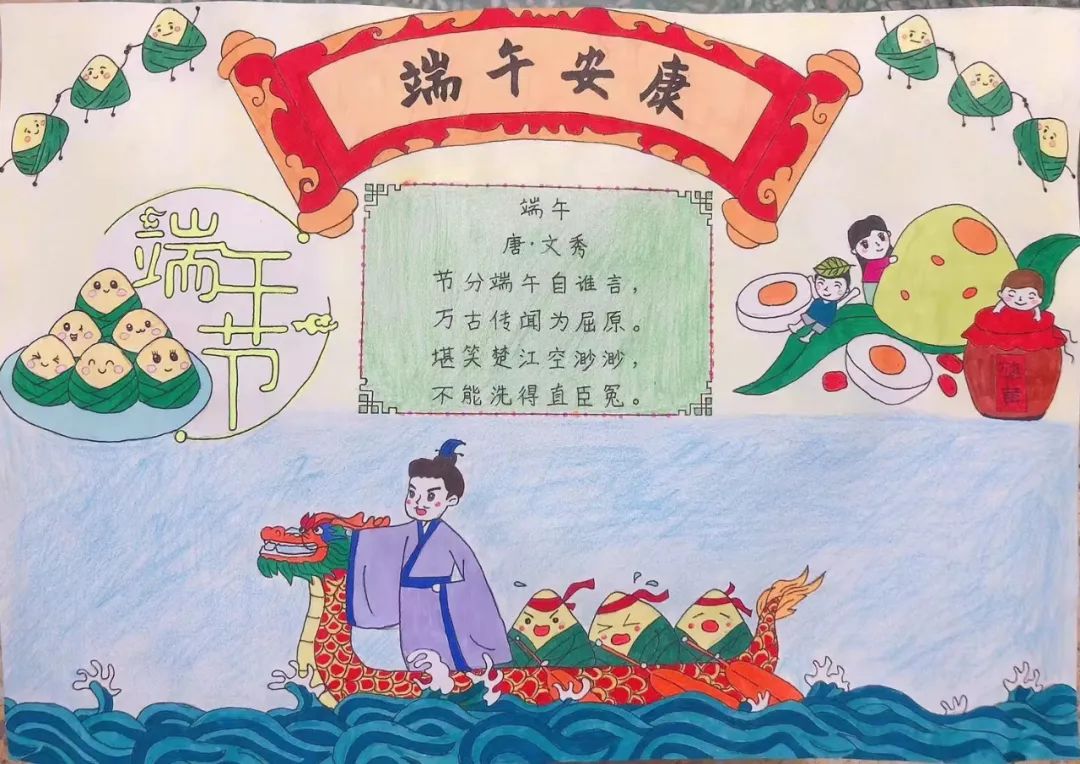 端午安康
端午节
端午
唐·文秀
节分端午自谁言，
万古传闻为屈原。
堪笑楚江空渺渺，
不能洗得直臣冤。
雄黄